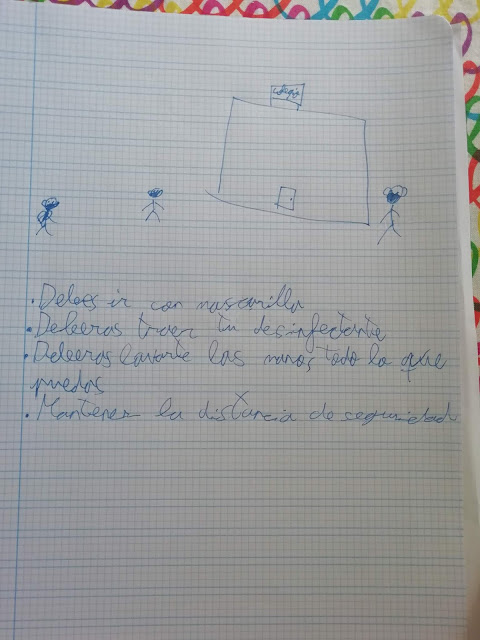 colegio
• Debes ir con mascarilla
• Deberas traer tu desinfectante
• Deberas lavarte las manos todo lo que
puedas
• Mantener la distancia de seguridad.